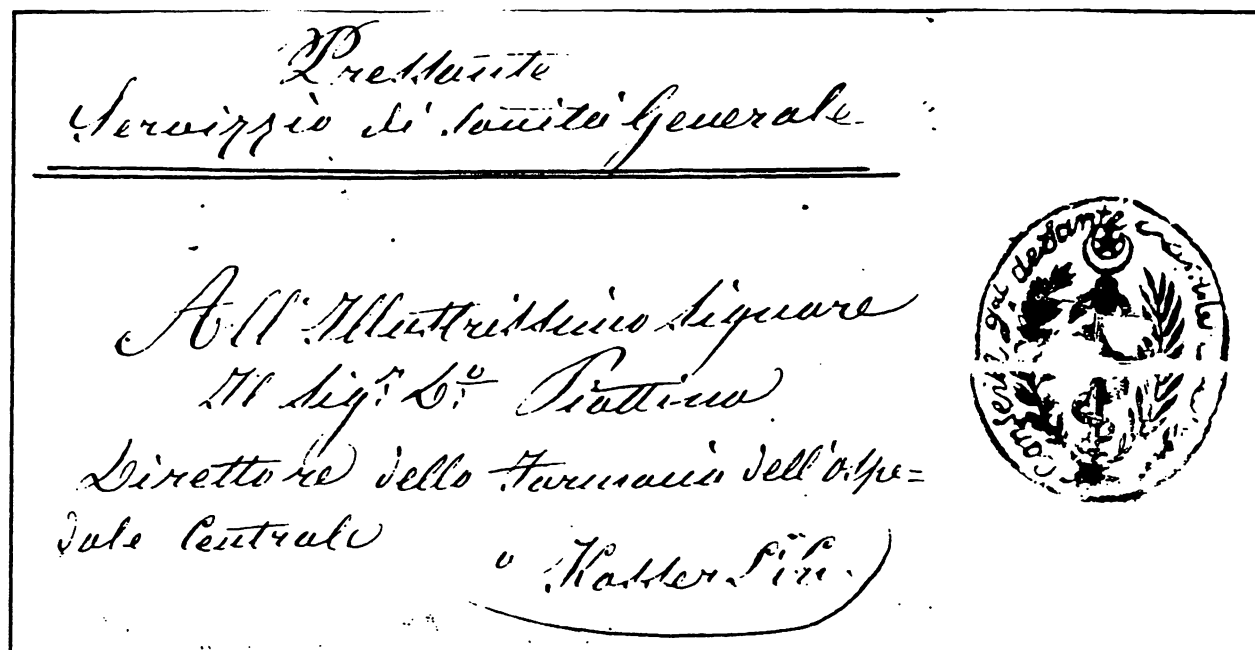 Pressante
Servizzio di Sanità Generale
All' Illustrissimo Signore
Il Sigr. Do. Piattino
Direttore della Farmacia dell'ospe=
dale Centrale
a Kasser
Conseil gal de Sante